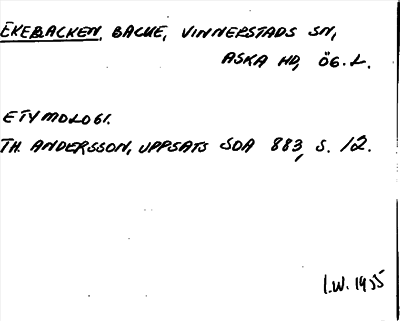 EKEBACKEN, BACKE, VINNERSTADS SN,
ASKA HD, ÖG. L.
ETYMOLOGI.
TH. ANDERSSON, UPPSATS SOA 883, S. 12.
I.W. 1955